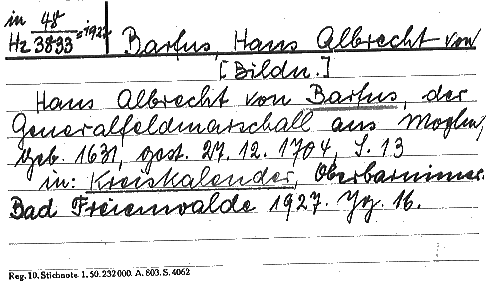 in 48
Hz 3893 = 1927
Barfus, Hans Albrecht von
[Bildn.]
Hans Albrecht von Barfus, der
Generalfeldmarschall aus Moglin,
geb. 1631, gest. 27. 12. 1704, S. 13
in: Kreiskalender, Oberbarnimer.
Bad Freienwalde 1927. Jg. 16.
Reg. 10. Stichnote 1. 50. 232000. A. 803. S. 4062